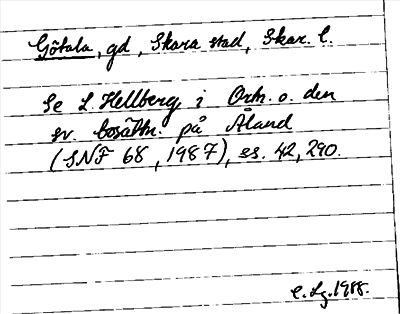 Götala, gd, Skara stad, Skar. l.
Se L. Hellberg i Ortn. o. den
sv. bosättn. på Åland
(SNF 68, 1987), ss. 42, 290.
C. Lg. 1988.